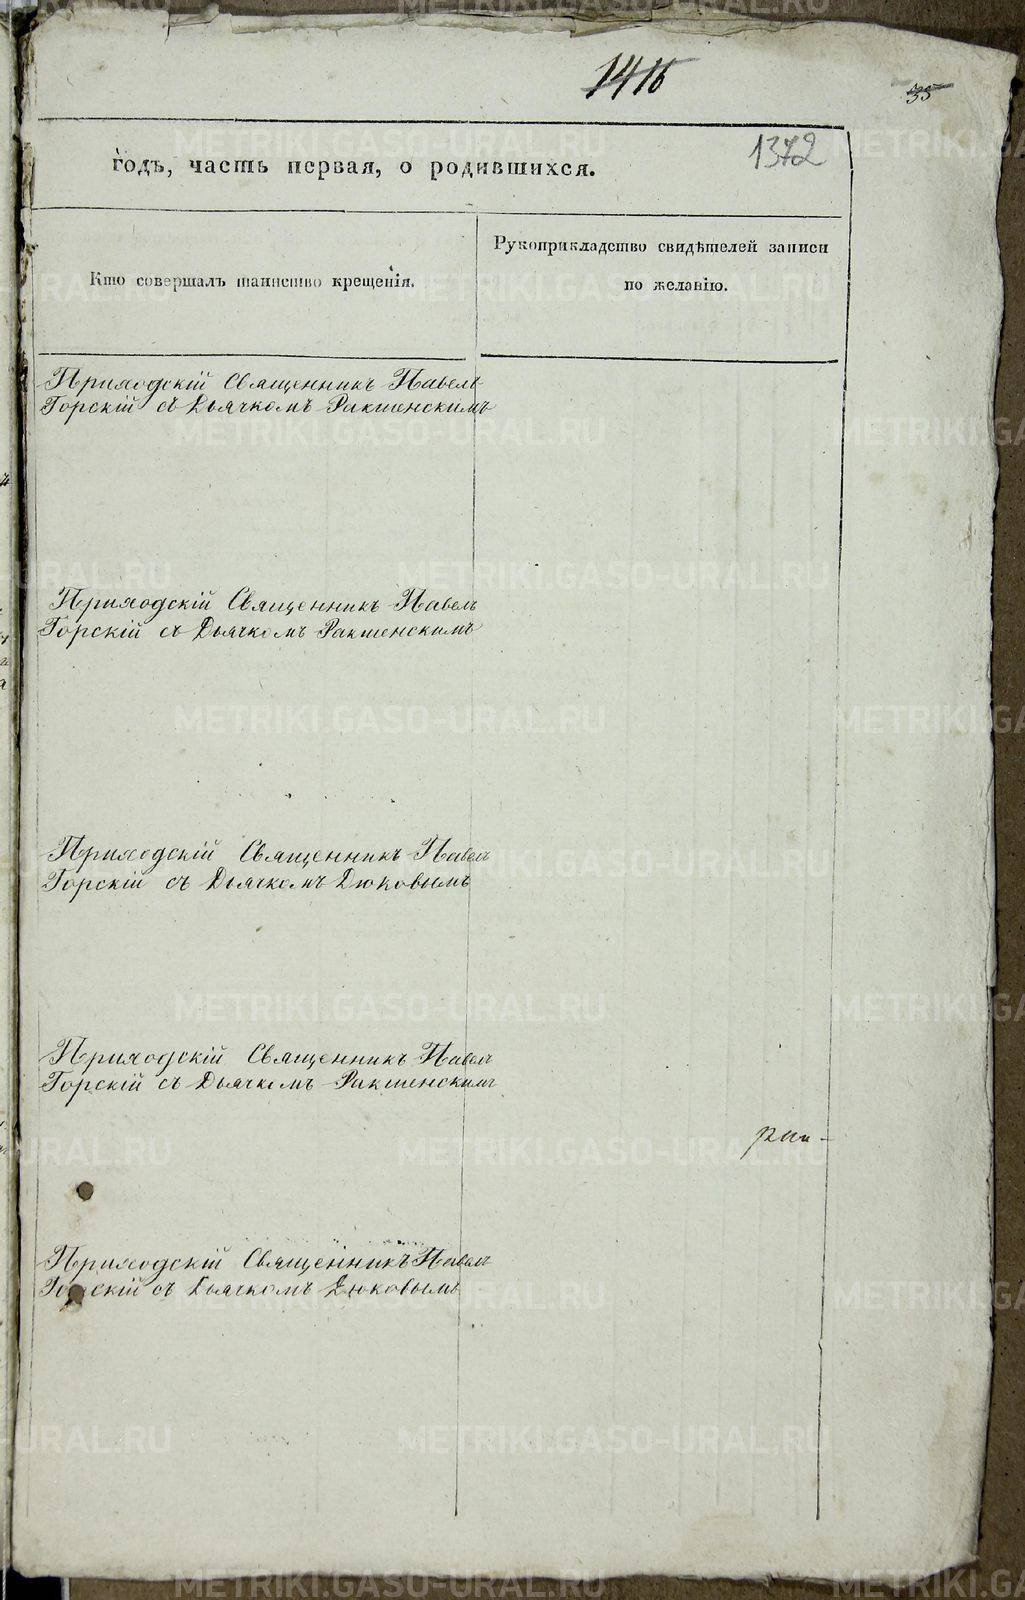 1416
35
1372
годъ, часть первая, о родившихся.
Кто совершалъ таинство крещенія.
Рукоприкладство свидѣтелей записи
по желанію.
Приходскій Священникъ Павелъ
Горскій съ Дьячкомъ Ракшенскимъ
Приходскій Священникъ Павелъ
Горскій съ Дьячкомъ Ракшенскимъ
Приходскій Священникъ Павелъ
Горскій съ Дьячкомъ Дюковымъ
Приходскій Священникъ Павелъ
Горскій съ Дьячкомъ Ракшенскимъ
Приходскій Священникъ Павелъ
Горскій съ Дьячкомъ Дюковымъ
METRIKI.GASO-URAL.RU